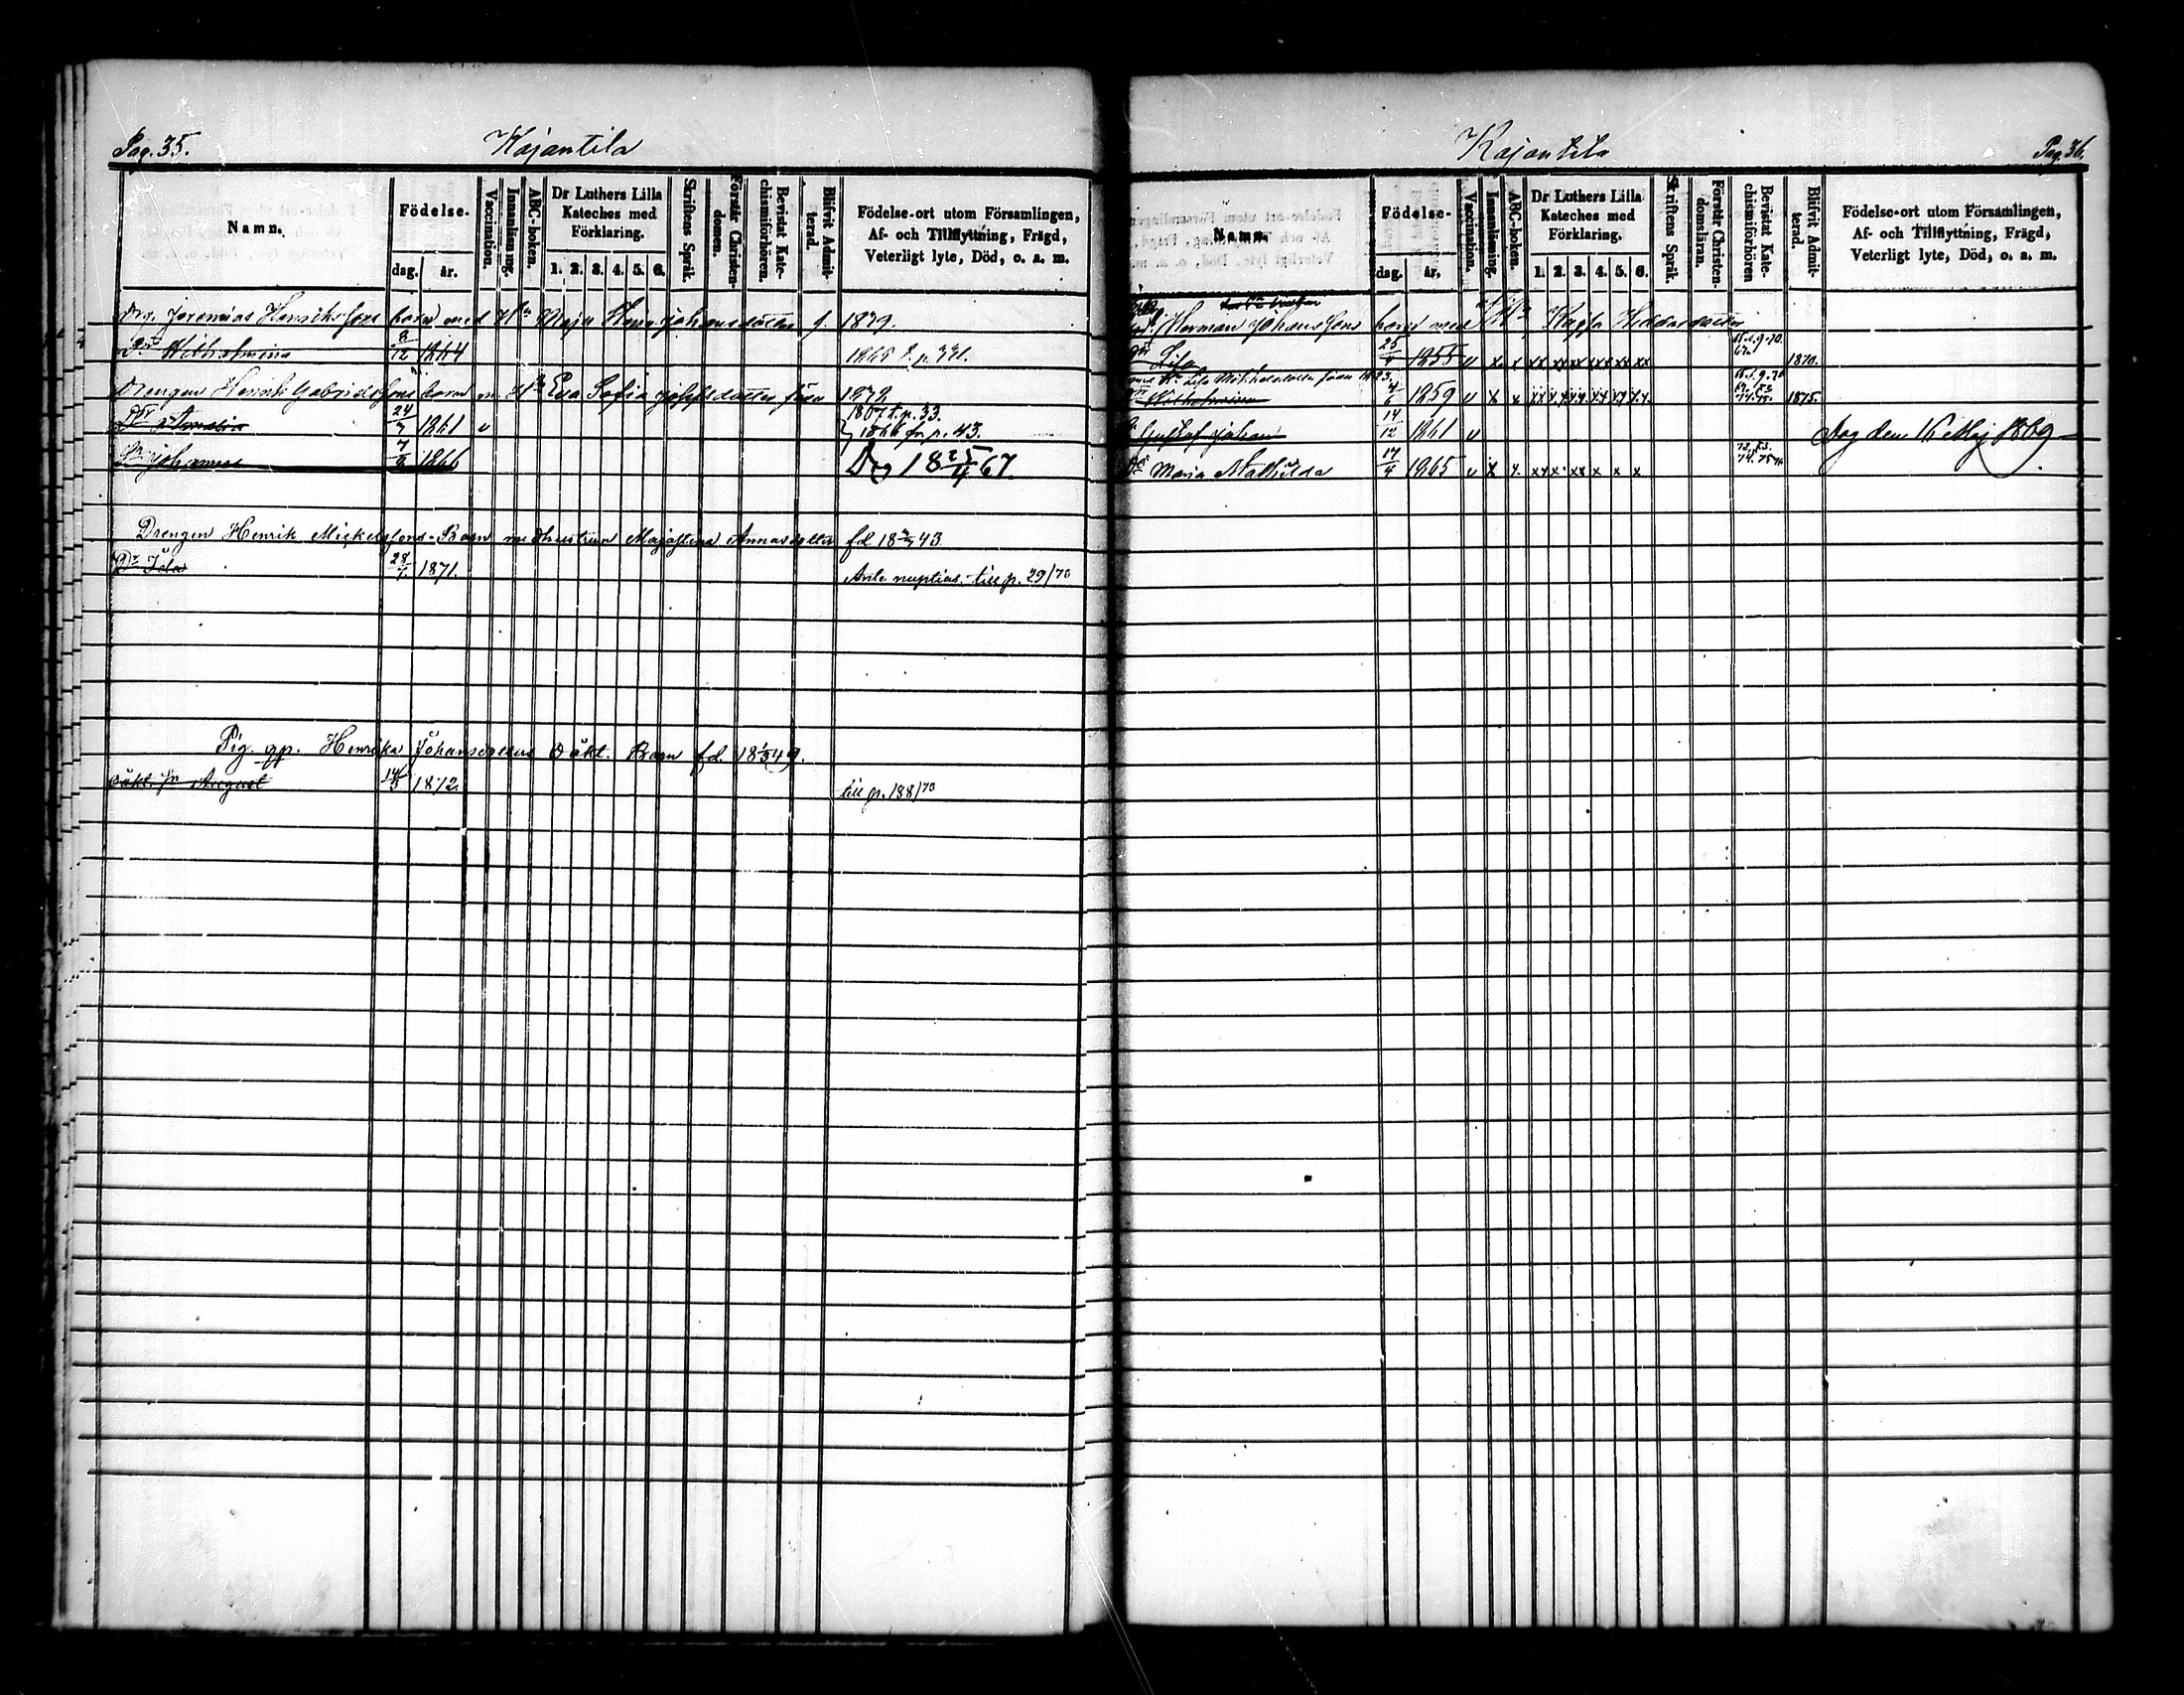 Pag. 35.
Kajantila
Namn.
Födelse-
dag.
år.
Vaccination.
Innanläsning.
ABC-boken.
Dr Luthers Lilla
Kateches med
Förklaring.
1. 2. 3. 4. 5. 6.
Skriftens Språk.
Förstår Christen-
domen.
Bevistat Kate-
chismiförhören.
Blifvit Admit-
terad.
Födelse-ort utom Församlingen,
Af- och Tillflyttning, Frägd,
Veterligt lyte, Död, o. a. m.
Drg. Jeremias Henrikssons barn med Maja Johansdotter f. 1839.
Wilhelmina 8/12 1864
Drengen Henrik Gabrielssons barn m. Eva Sofia
24/7 1861 v 1867 t. p. 33.
1866 fr. p. 43.
Johannes 7/8 1866 Dog 18 25/4 67.
Drengen Henrik Mickelssons Barn m hustrun Annasdotter fd 43
Dr Ida 28/7 1871. Ante nuptias. till p. 29/73
Pig. Henrika Johansdotters Oäkt. Barn fd. 18 49.
Oäkt. Sn August 14/3 1872. till p. 188/73
Kajantila
Pag. 36.
Namn.
Födelse-
dag.
år.
Vaccination.
Innanläsning.
ABC-boken.
Dr Luthers Lilla
Kateches med
Förklaring.
1. 2. 3. 4. 5. 6.
Skriftens Språk.
Förstår Christen-
domsläran.
Bevistat Kate-
chismiförhören
Blifvit Admit-
terad.
Födelse-ort utom Församlingen,
Af- och Tillflyttning, Frägd,
Veterligt lyte, Död, o. a. m.
Herman Johanssons barn med
1855 v x x xx xx xx xx xx xx 1870.
Wilhelmina 4/6 1859 v x x 1875.
Gustaf Johan 14/12 1861 v Dog den 16 Maj 1869
Maria Mathilda 17/4 1865 v x x